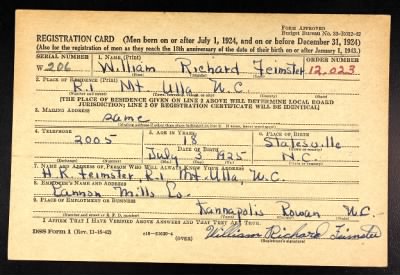 Form Approved
Budget Bureau No. 33-R012-42
REGISTRATION CARD (Men born on or after July 1, 1924, and on or before December 31, 1924)
(Also for the registration of men as they reach the 18th anniversary of the date of their birth on or after January 1, 1925.)
SERIAL NUMBER 1. NAME (Print) ORDER NUMBER
W 206 William Richard Feimster 12,023
(First) (Middle) (Last)
2. PLACE OF RESIDENCE (Print)
R.1 Mt. Ulla N.C.
[THE PLACE OF RESIDENCE GIVEN ON LINE 2 ABOVE WILL DETERMINE LOCAL BOARD
JURISDICTION; LINE 2 OF REGISTRATION CERTIFICATE WILL BE IDENTICAL]
3. MAILING ADDRESS
Same
4. TELEPHONE 5. AGE IN YEARS 6. PLACE OF BIRTH
2005 18 Statesville
DATE OF BIRTH
July 3 1925 N.C.
7. NAME AND ADDRESS OF PERSON WHO WILL ALWAYS KNOW YOUR ADDRESS
H.R. Feimster, R.1 Mt. Ulla, N.C.
8. EMPLOYER'S NAME AND ADDRESS
Cannon Mills Co.
9. PLACE OF EMPLOYMENT OR BUSINESS
Kannapolis Rowan N.C.
I AFFIRM THAT I HAVE VERIFIED ABOVE ANSWERS AND THAT THEY ARE TRUE.
DSS Form 1 (Rev. 11-16-42) (OVER) William Richard Feimster